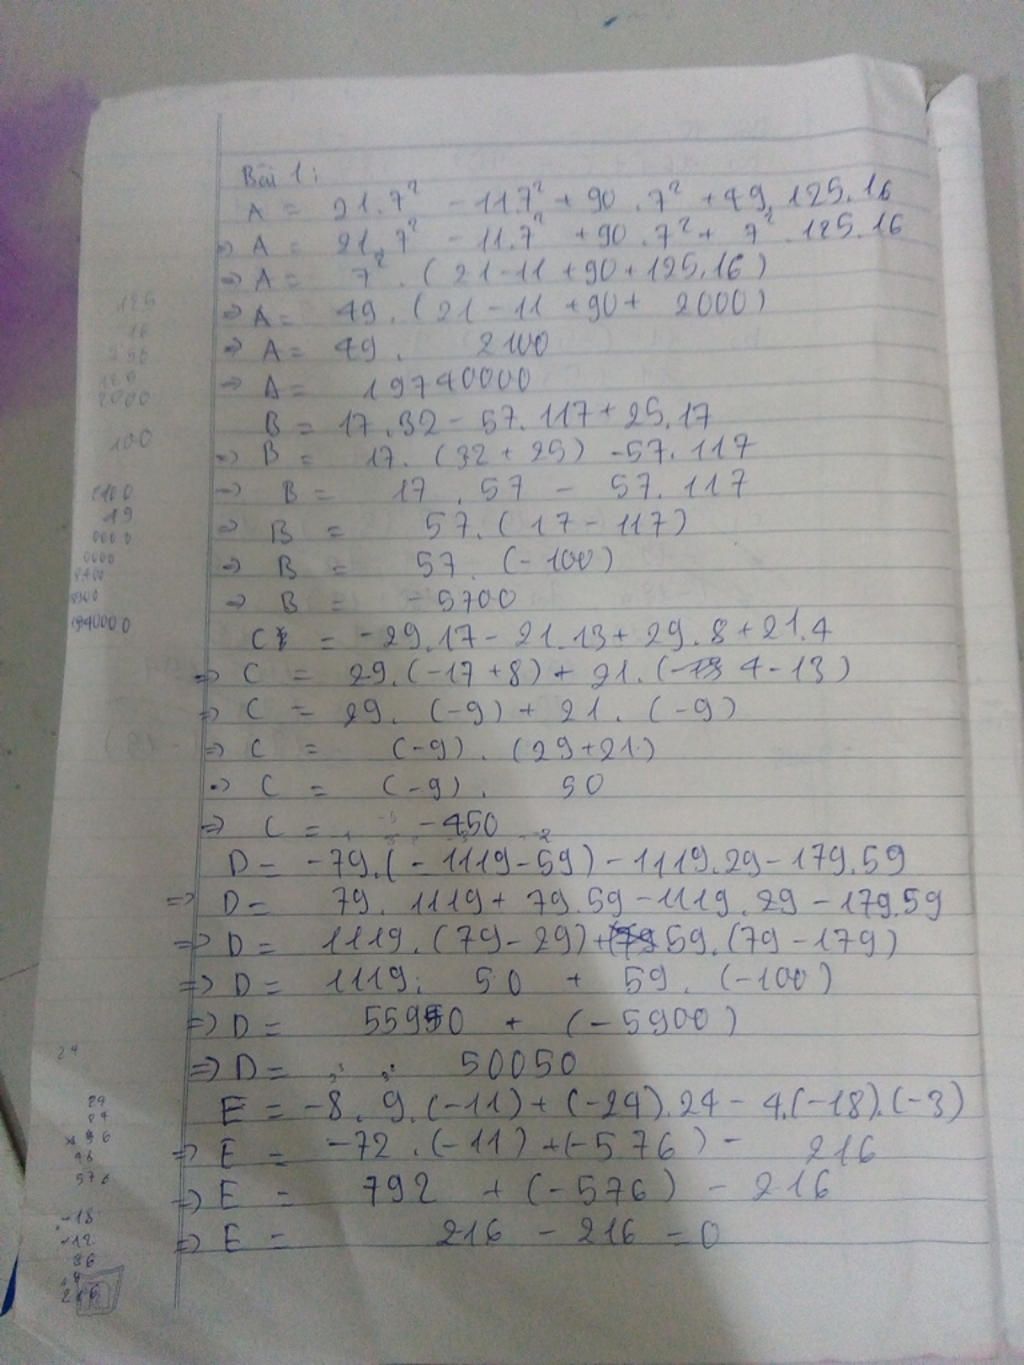 Bài 1:
A = 21.7² - 11.7² + 90.7² + 49.125.16
=> A = 21.7² - 11.7² + 90.7² + 7².125.16
=> A = 7².(21-11+90+125.16)
=> A = 49.(21-11+90+ 2000)
=> A = 49. 2100
=> A = 19740000
B = 17.32 - 57.117 + 25.17
=> B = 17.(32+25) - 57.117
=> B = 17.57 - 57.117
=> B = 57.(17-117)
=> B = 57.(-100)
=> B = -5700
C = -29.17 - 21.13 + 29.8 + 21.4
=> C = 29.(-17+8) + 21.(4-13)
=> C = 29.(-9) + 21.(-9)
=> C = (-9).(29+21)
=> C = (-9). 50
=> C = -450
D = -79.(-1119-59) - 1119.29 - 179.59
=> D = 79.1119 + 79.59 - 1119.29 - 179.59
=> D = 1119.(79-29) + 59.(79-179)
=> D = 1119. 50 + 59.(-100)
=> D = 55950 + (-5900)
=> D = 50050
E = -8.9.(-11) + (-24).24 - 4.(-18).(-3)
=> E = -72.(-11) + (-576) - 216
=> E = 792 + (-576) - 216
=> E = 216 - 216 = 0
125
16
2000
100
2100
49
0000
24
96
576
-18
-12
36
216